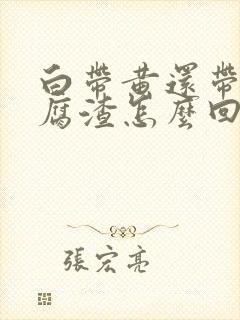 白帶黃還帶
腐渣怎麼回
張宏亮